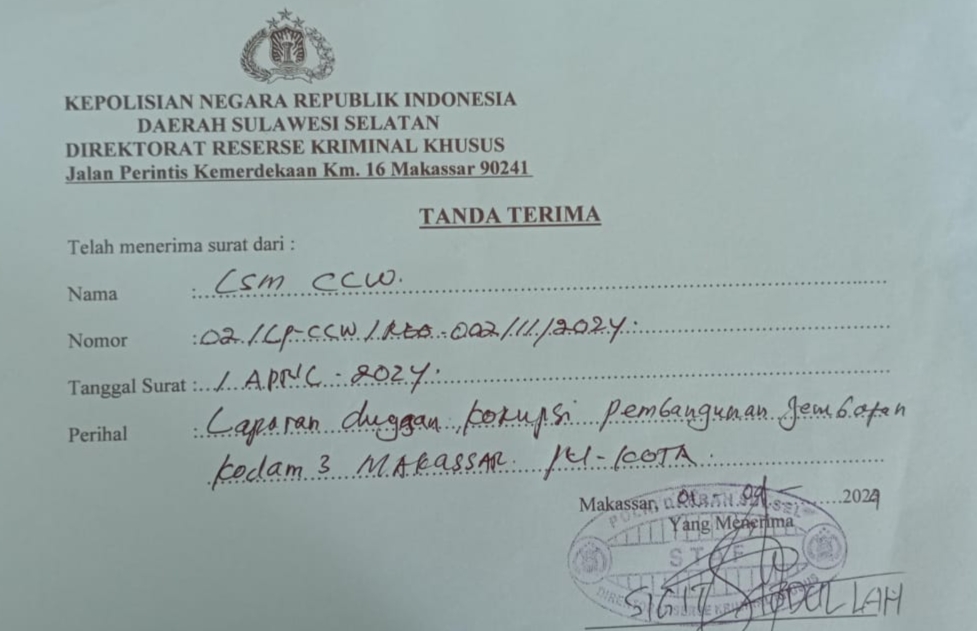 KEPOLISIAN NEGARA REPUBLIK INDONESIA
DAERAH SULAWESI SELATAN
DIREKTORAT RESERSE KRIMINAL KHUSUS
Jalan Perintis Kemerdekaan Km. 16 Makassar 90241
TANDA TERIMA
Telah menerima surat dari :
Nama : LSM CCW.
Nomor : 02/LP-CCW/REG-002/11/2024.
Tanggal Surat : 1 APRIL - 2024.
Perihal : Laporan duggan korupsi Pembangunan Jembatan
kodam 3 MAKASSAR KOTA.
Makassar, 01 - 04 2024
Yang Menerima
STAF
SIGIT ABDULLAH